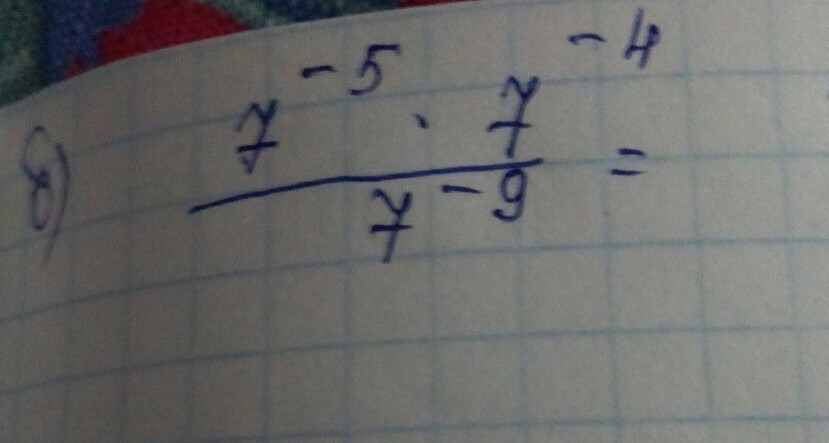 б) 7^-5 · 7^-4 / 7^-9 =